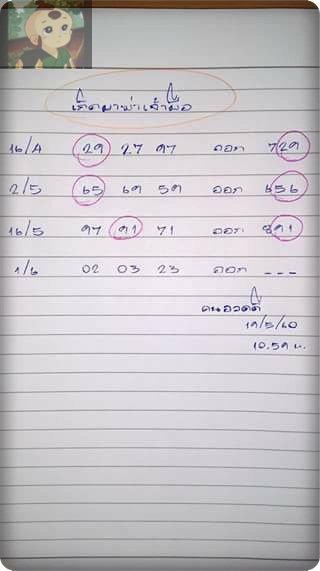 16/4 29 27 97 ออก 729
2/5 65 69 59 ออก 656
16/5 97 91 71 ออก 891
1/6 02 03 23 ออก ---
คนอวดดี
19/5/60
10.59 น.